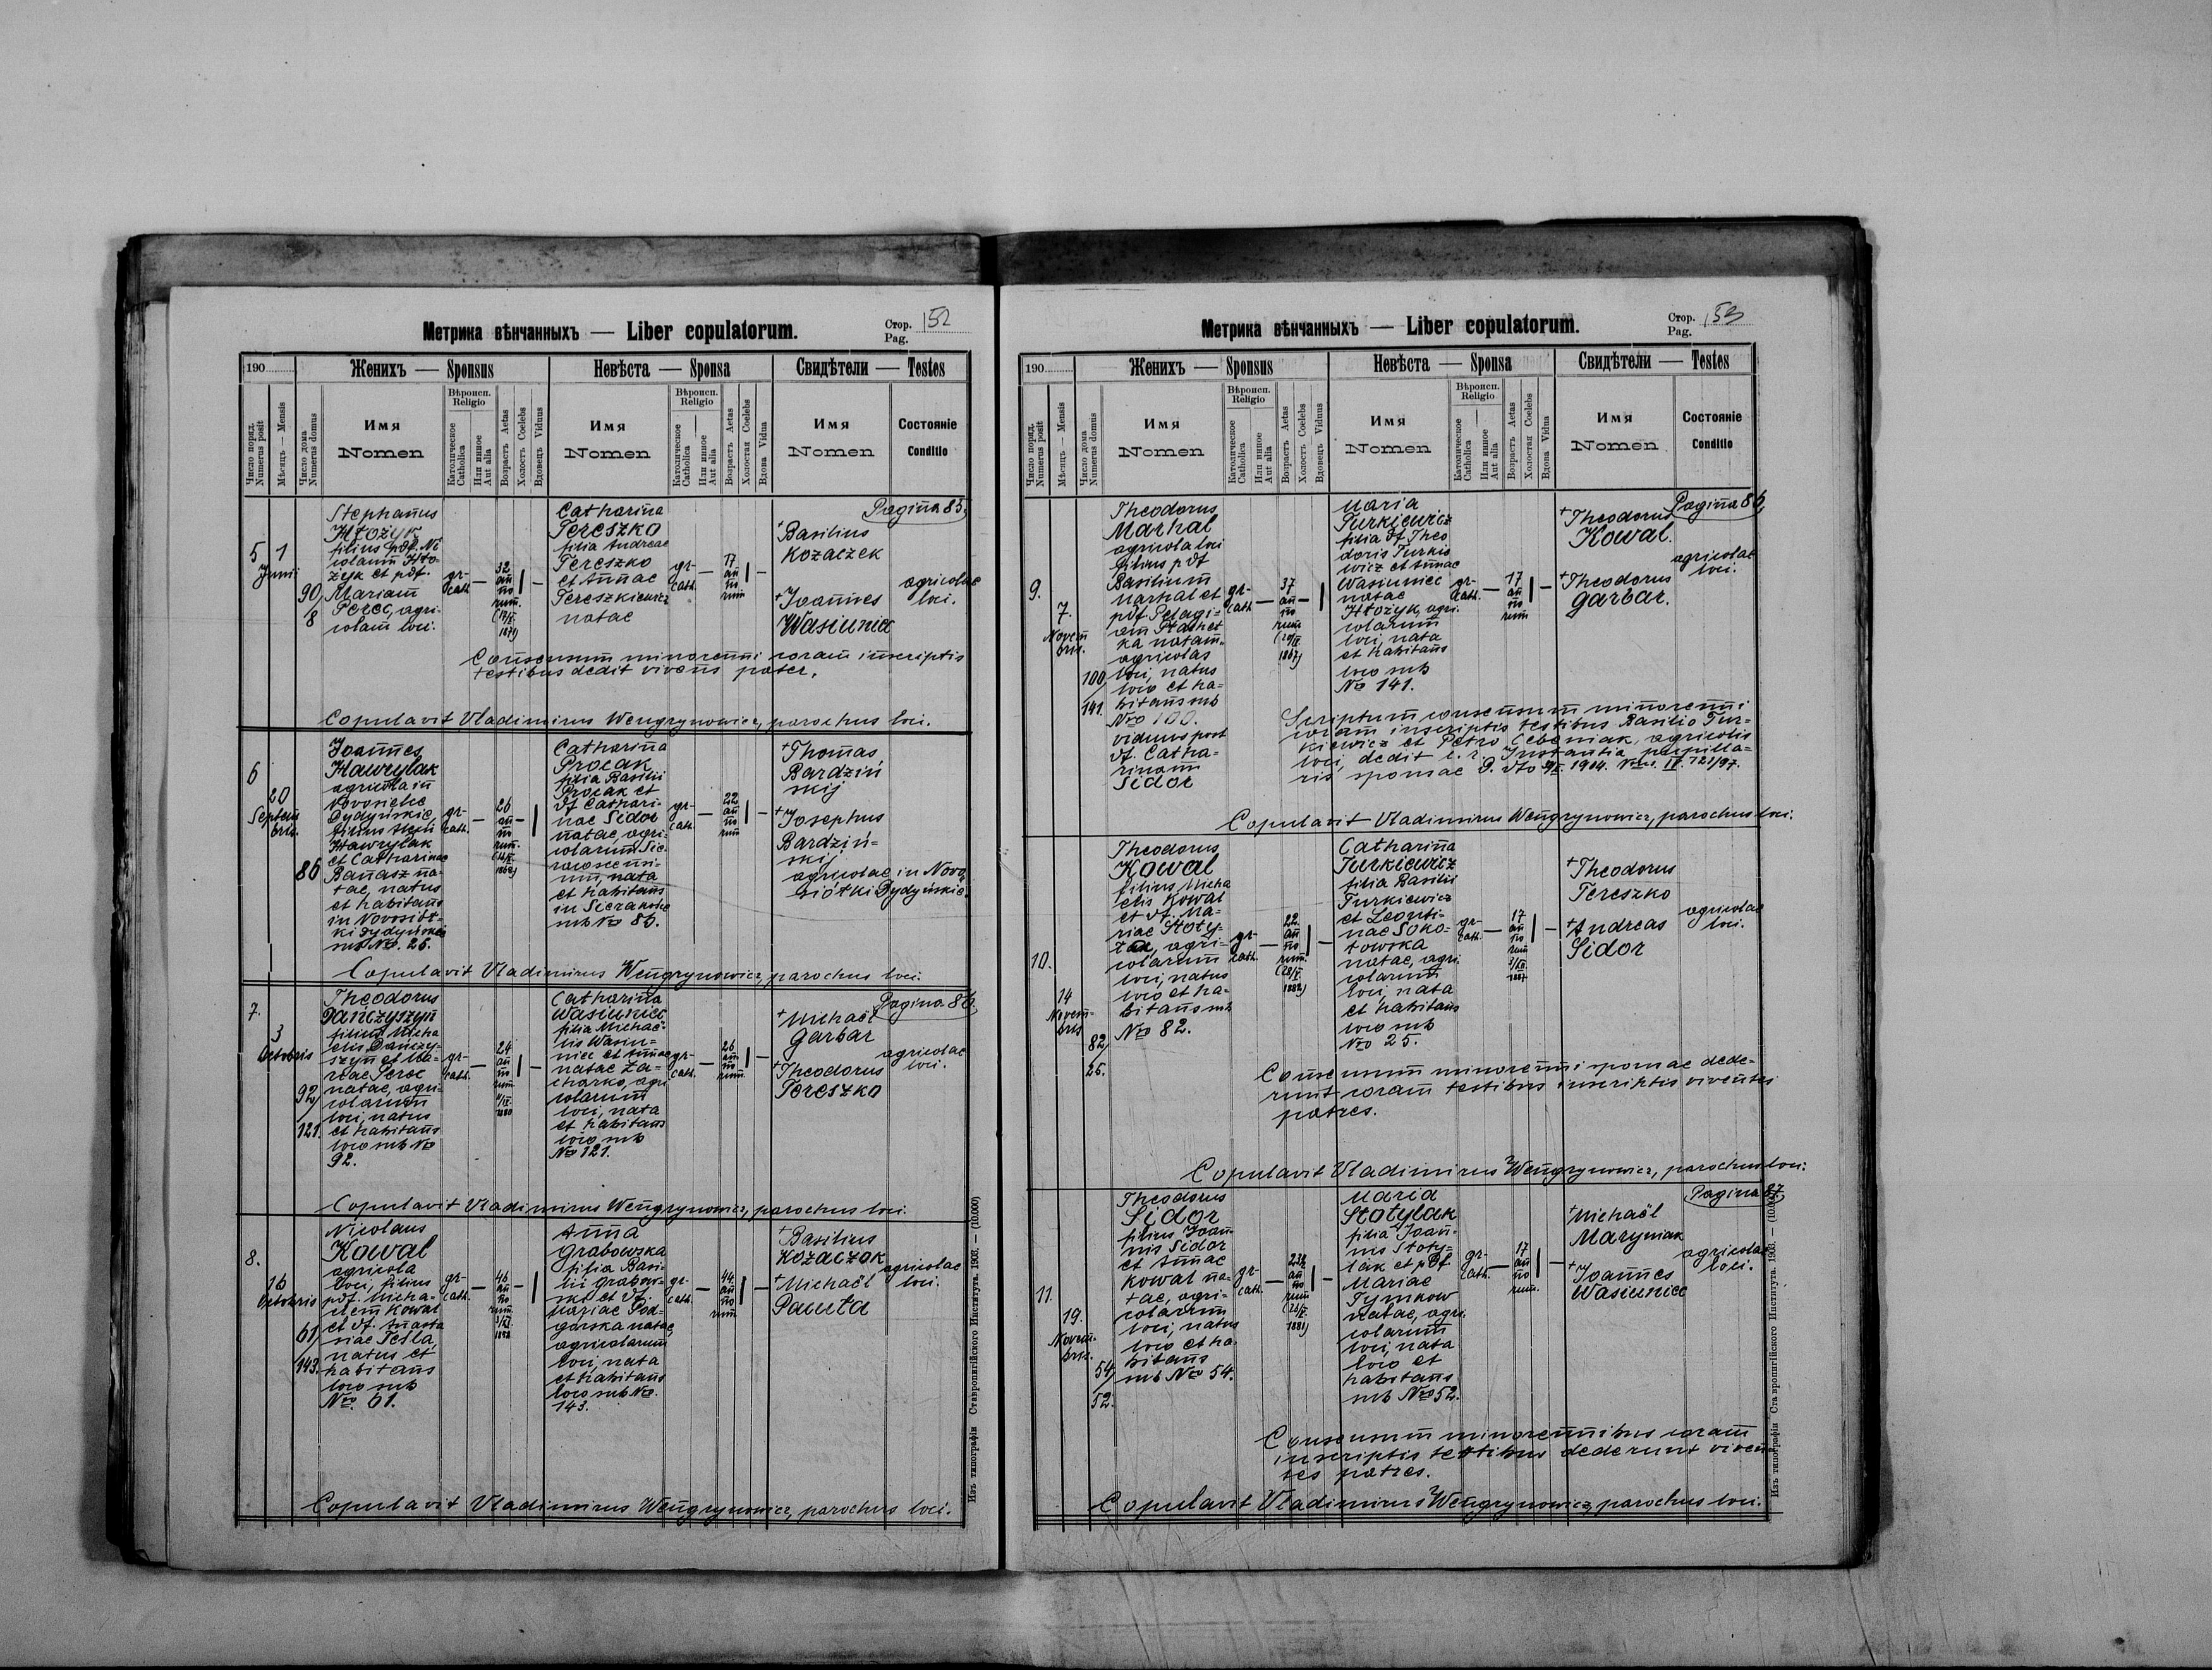 Метрика вѣнчанныхъ — Liber copulatorum.
Стор. Pag. 152
190
Женихъ — Sponsus
Невѣста — Sponsa
Свидѣтели — Testes
Число поряд. Numerus posit
Мѣсяцъ — Mensis
Число дома Numerus domus
Имя
Nomen
Вѣроисп. Religio
Католическое Catholica
Или иное Aut alia
Возрастъ Aetas
Холостъ Coelebs
Вдовецъ Viduus
Имя
Nomen
Вѣроисп. Religio
Католическое Catholica
Или иное Aut alia
Возрастъ Aetas
Холостая Coelebs
Вдова Vidua
Имя
Nomen
Состояніе
Conditio
Pagina 85.
5
1
Junii
90/
8
Stephanus
Hłożyk
filius pdf. Ni
colaum Hło-
żyk et pdf.
Mariam
Perec, agri-
colam loci.
gr-
cath.
32
an
no
rum.
1871
Catharina
Tereszko
filia Andreae
Tereszko
et Annae
Tereszkiewicz
natae
gr-
cath.
17
an
no
rum
+Basilius
Kozaczek
+Joannes
Wasiunice
agricolae
loci.
Consensum minorenni coram inscriptis
testibus dedit vivens pater.
Copulavit Vladimirus Wengrynowicz, parochus loci.
6
20
Septem
bris.
86
Joannes
Hawrylak
agricola in
Novosielce
Dydyńskie,
filius Alexii
Hawrylak
et Catharinae
Banasz na-
tae, natus
et habitans
in Novosioł-
ki Dydyńskie
sub No. 26.
gr-
cath.
26
an
no
rum.
Catharina
Procak
filia Basilii
Procak et
df. Cathari-
nae Sidor
natae, agri-
colarum Sie-
racoscensi-
um, nata
et habitans
in Sierakośce
sub No 86.
gr-
cath.
22
an
no
rum
+Thomas
Bardziń
skij
+Josephus
Bardziń-
skij
agricolae in Novo
siółki Dydyńskie.
Copulavit Vladimirus Wengrynowicz, parochus loci.
Pagina 86.
7.
3
Octobris
92/
121.
Theodorus
Danczyszyn
filius Micha
elis Danczy-
szyn et Ma-
riae Perec
natae, agri-
colarum
loci, natus
et habitans
loco sub No
92.
gr-
cath.
24
an
no
rum
1880
Catharina
Wasiunice
filia Michae-
lis Wasiu-
nice et Annae
natae Za-
charko, agri
colarum
loci, nata
et habitans
loco sub
No 121.
gr-
cath.
26
an
no
rum.
+Michaël
Garbar
+Theodorus
Tereszko
agricolae
loci.
Copulavit Vladimirus Wengrynowicz, parochus loci.
8.
16
Octobris
61/
143.
Nicolaus
Kowal
agricola
loci, filius
pdf. Micha-
elem Kowal
et df. Anasta
siae Tesla,
natus et
habitans
loco sub
No. 61.
gr-
cath.
46
an
no
rum.
1858
Anna
Grabowska
filia Basi-
lii Grabow-
ski et df.
Mariae Pod-
górska natae,
agricolarum
loci, nata
et habitans
loco sub No.
143.
gr-
cath.
44
an
no
rum
+Basilius
Kozaczok
+Michaël
Pacuta
agricolae
loci.
Copulavit Vladimirus Wengrynowicz, parochus loci.
Изъ типографіи Ставропигійского Института. 1903. — (10.000)
Метрика вѣнчанныхъ — Liber copulatorum.
Стор. Pag. 153
190
Женихъ — Sponsus
Невѣста — Sponsa
Свидѣтели — Testes
Число поряд. Numerus posit
Мѣсяцъ — Mensis
Число дома Numerus domus
Имя
Nomen
Вѣроисп. Religio
Католическое Catholica
Или иное Aut alia
Возрастъ Aetas
Холостъ Coelebs
Вдовецъ Viduus
Имя
Nomen
Вѣроисп. Religio
Католическое Catholica
Или иное Aut alia
Возрастъ Aetas
Холостая Coelebs
Вдова Vidua
Имя
Nomen
Состояніе
Conditio
Pagina 86,
9.
7.
Novem
bris.
100/
141.
Theodorus
Marhal
agricola loci
filius pdf
Basilium
Marhal et
pdf. Pelagi-
am Stahet
ka natam,
agricolas
loci, natus
loco et ha-
bitans sub
No 100.
viduus post
df. Catha-
rinam
Sidor
gr-
cath.
37
an
no
rum
1867)
Maria
Turkiewicz
filia df. Theo
doris Turkie
wicz et Annae
Wasiunice
natae
Hłożyk, agri.
colarum
loci, nata
et habitans
loco sub
No 141.
gr-
cath.
17
an
no
rum
+Theodorus
Kowal.
+Theodorus
Garbar.
agricolae
loci.
Scriptum consensum minorenni
coram inscriptis testibus Basilio Tur-
kiewicz et Petro Cebeniak, agricolis
loci, dedit c. r. Instantia pupilla-
ris sponsae 1904.
Copulavit Vladimirus Wengrynowicz, parochus loci.
10.
14
Novem-
bris
82/
25.
Theodorus
Kowal
filius Micha
elis Kowal
et df. Ma-
riae Stoty-
lak, agri-
colarum
loci, natus
loco et ha-
bitans sub
No 82.
gr-
cath.
22
an
no
rum.
1882)
Catharina
Turkiewicz
filia Basilii
Turkiewicz
et Leonti-
nae Soko-
łowska
natae, agri.
colarum
loci, nata
et habitans
loco sub
No 25.
gr-
cath.
17
an
no
rum.
1887
+Theodorus
Tereszko
+Andreas
Sidor
agricolae
loci.
Consensum minorenni sponsae dede-
runt coram testibus inscriptis viventes
patres.
Copulavit Vladimirus Wengrynowicz, parochus loci.
Pagina 87
11.
19.
Novem-
bris.
54/
52.
Theodorus
Sidor
filius Joan-
nis Sidor
et Annae
Kowal na-
tae, agri-
colarum
loci, natus
loco et ha
bitans
sub No 54.
gr-
cath.
23½
an
no
rum
1881)
Maria
Stotylak
filia Joan-
nis Stoty-
lak et pdf
Mariae
Tymkow
natae, agri.
colarum
loci, nata
loco et
habitans
sub No 52.
gr-
cath.
17
an
no
rum.
+Michaël
Maryniak
+Joannes
Wasiunice
agricolae
loci.
Consensum minorennibus coram
inscriptis testibus dederunt viven
tes patres.
Copulavit Vladimirus Wengrynowicz, parochus loci.
Изъ типографіи Ставропигійского Института. 1903. — (10.000)